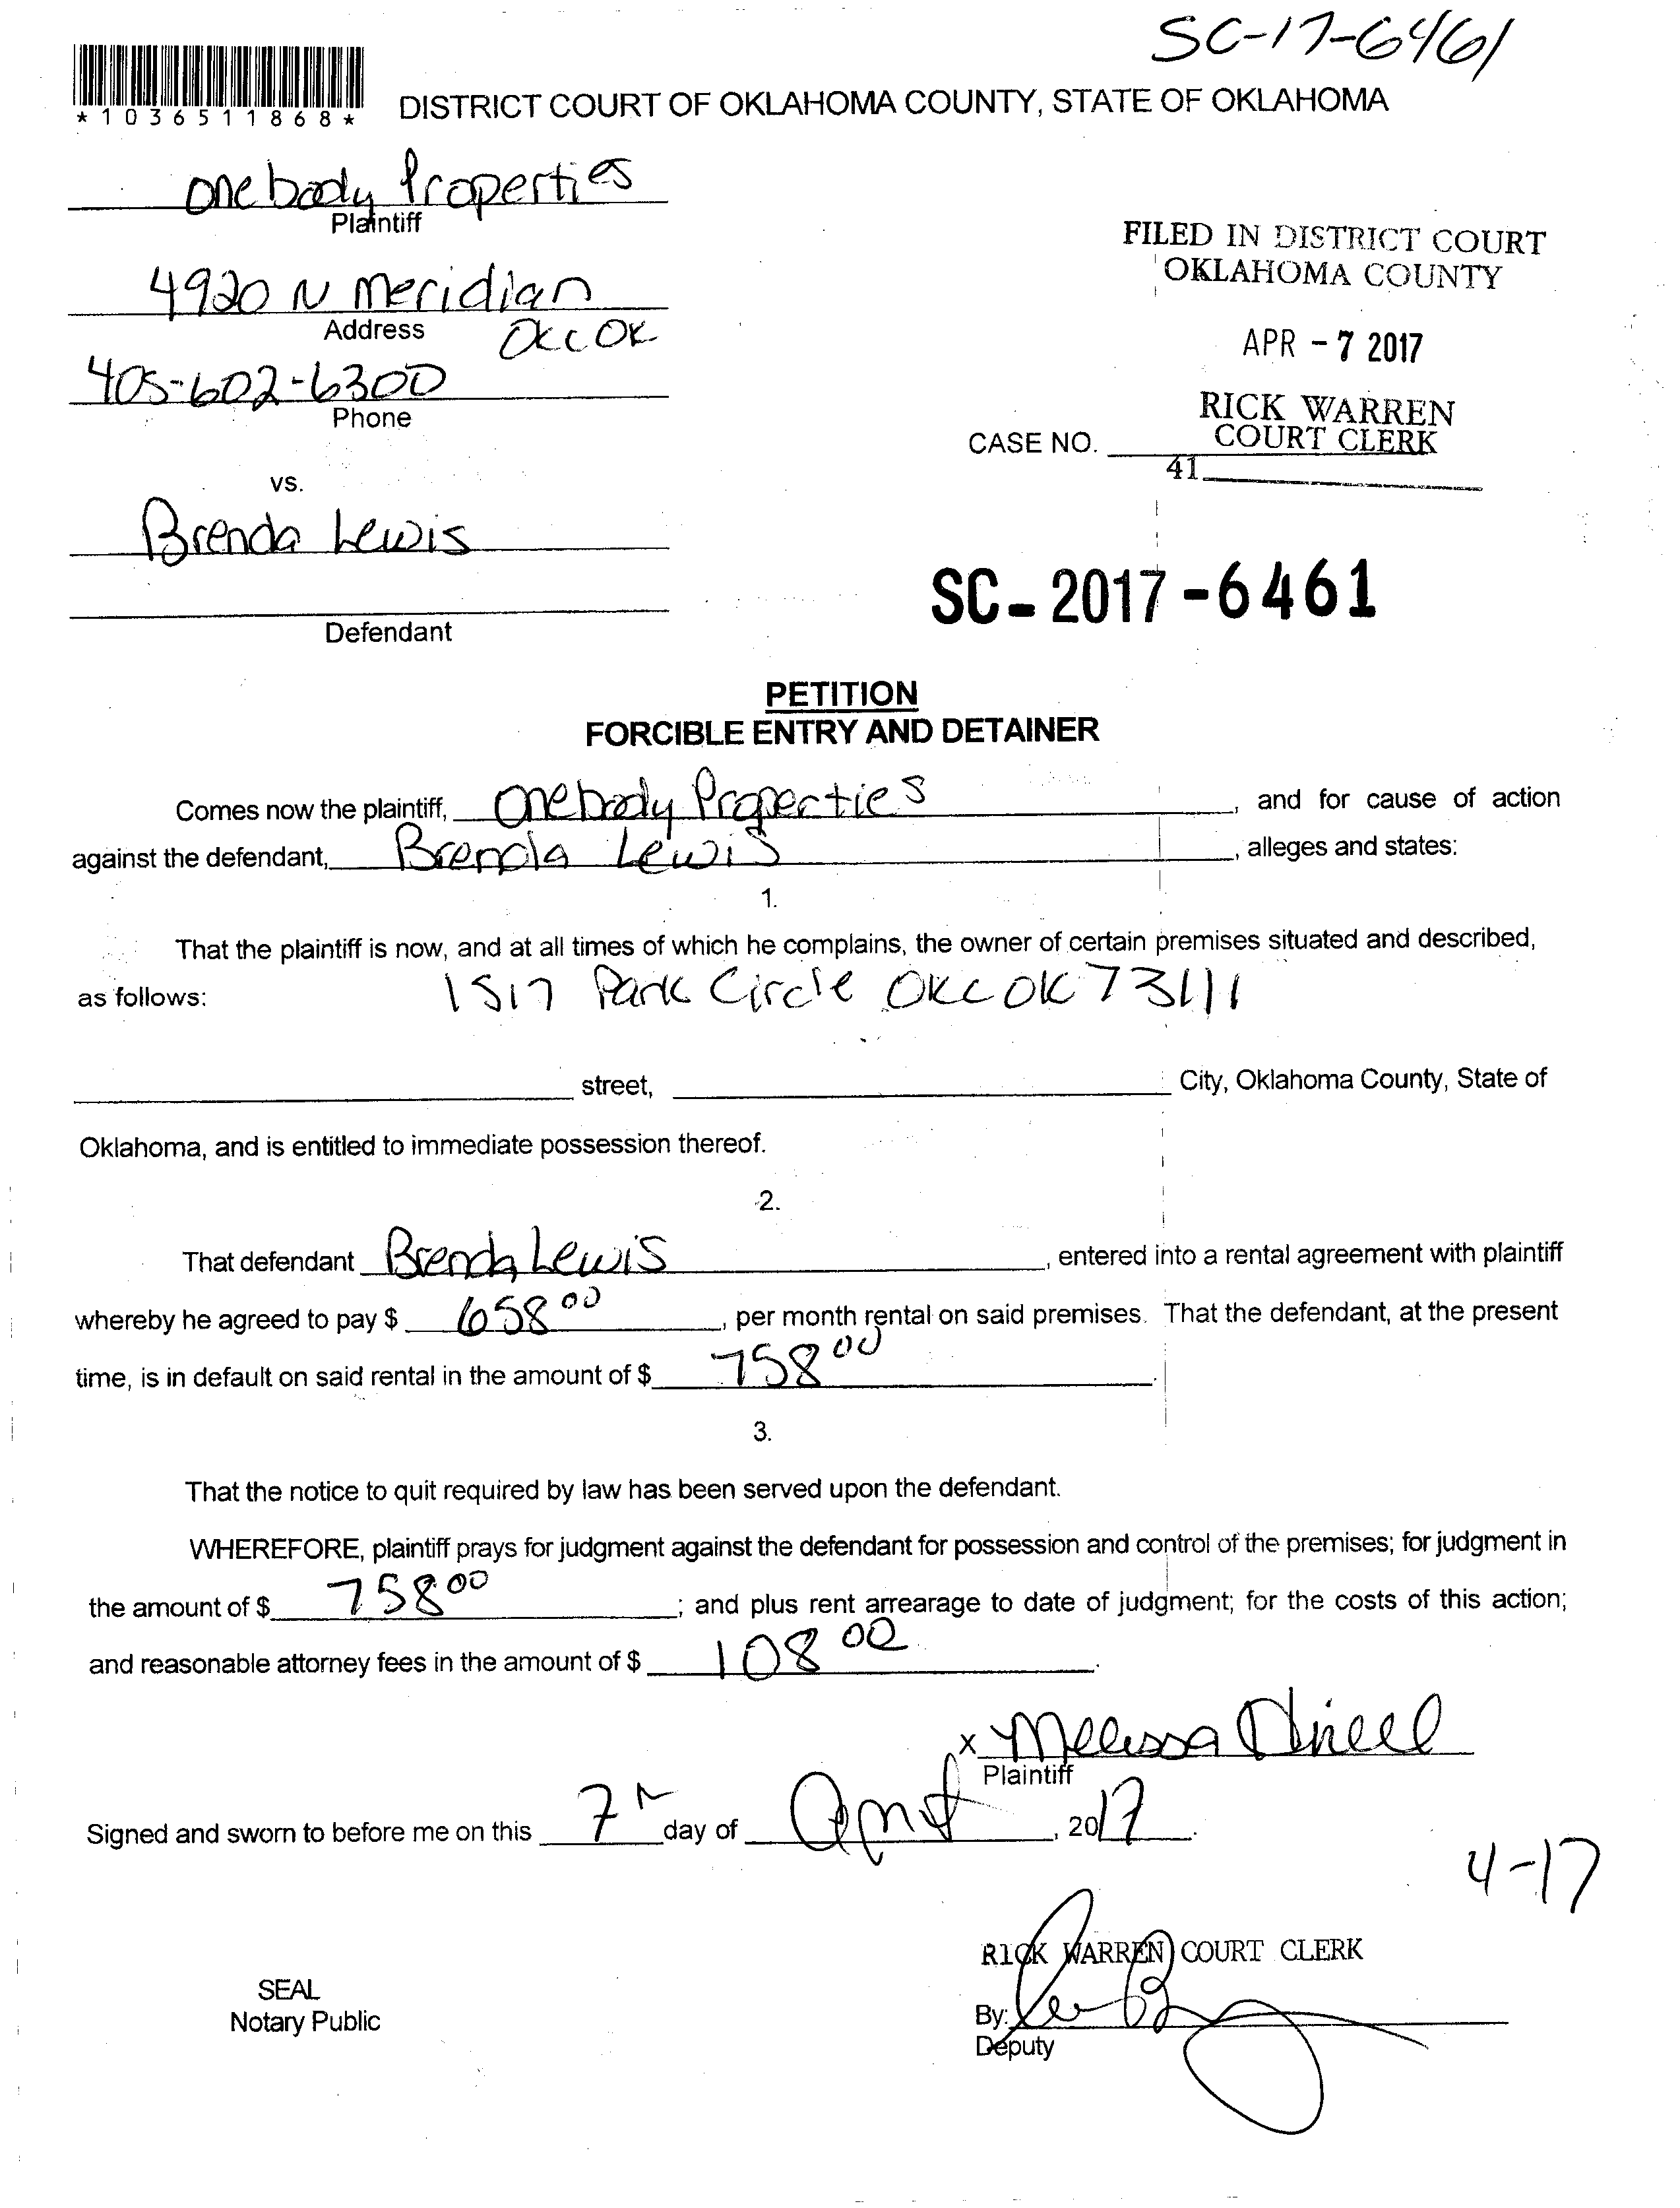 SC-17-6461
*1036511868*
DISTRICT COURT OF OKLAHOMA COUNTY, STATE OF OKLAHOMA
One body Properties
Plaintiff
4920 N Meridian
Address
OKC OK
405-602-6300
Phone
FILED IN DISTRICT COURT
OKLAHOMA COUNTY
APR - 7 2017
RICK WARREN
COURT CLERK
CASE NO.
41
vs.
Brenda Lewis
Defendant
SC-2017-6461
PETITION
FORCIBLE ENTRY AND DETAINER
Comes now the plaintiff, One body Properties, and for cause of action
against the defendant, Brenda Lewis, alleges and states:
1.
That the plaintiff is now, and at all times of which he complains, the owner of certain premises situated and described,
as follows: 1517 Park Circle OKC OK 73111
street, City, Oklahoma County, State of
Oklahoma, and is entitled to immediate possession thereof.
2.
That defendant Brenda Lewis, entered into a rental agreement with plaintiff
whereby he agreed to pay $ 658 00, per month rental on said premises. That the defendant, at the present
time, is in default on said rental in the amount of $ 758 00.
3.
That the notice to quit required by law has been served upon the defendant.
WHEREFORE, plaintiff prays for judgment against the defendant for possession and control of the premises; for judgment in
the amount of $ 758 00; and plus rent arrearage to date of judgment; for the costs of this action;
and reasonable attorney fees in the amount of $ 108 00.
x Melissa
Plaintiff
Signed and sworn to before me on this 7th day of April, 2017.
4-17
RICK WARREN COURT CLERK
SEAL
Notary Public
By:
Deputy